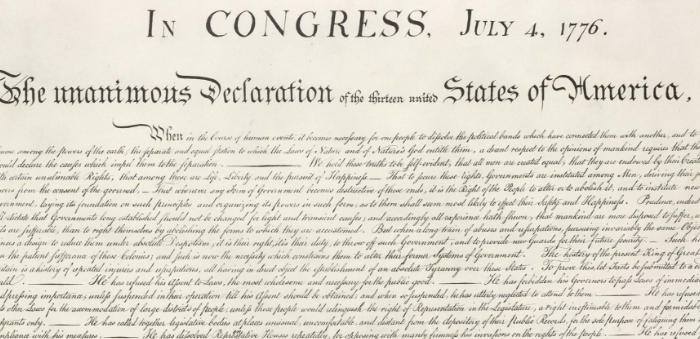 IN CONGRESS, JULY 4, 1776.
The unanimous Declaration of the thirteen united States of America,
When in the Course of human events, it becomes necessary for one people to dissolve the political bands which have connected them with another, and to
among the powers of the earth, the separate and equal station to which the Laws of Nature and of Nature's God entitle them, a decent respect to the opinions of mankind requires that they
declare the causes which impel them to the separation. — We hold these truths to be self-evident, that all men are created equal, that they are endowed by their
certain unalienable Rights, that among these are Life, Liberty and the pursuit of Happiness. — That to secure these rights, Governments are instituted among Men, deriving their
from the consent of the governed, — That whenever any Form of Government becomes destructive of these ends, it is the Right of the People to alter or to abolish it, and to institute
laying its foundation on such principles and organizing its powers in such form, as to them shall seem most likely to effect their Safety and Happiness. Prudence, indeed
dictate that Governments long established should not be changed for light and transient causes; and accordingly all experience hath shewn, that mankind are more disposed to suffer,
are sufferable, than to right themselves by abolishing the forms to which they are accustomed. But when a long train of abuses and usurpations, pursuing invariably the same Object
a design to reduce them under absolute Despotism, it is their right, it is their duty, to throw off such Government, and to provide new Guards for their future security. — Such
the patient sufferance of these Colonies; and such is now the necessity which constrains them to alter their former Systems of Government. The history of the present King of Great
is a history of repeated injuries and usurpations, all having in direct object the establishment of an absolute Tyranny over these States. To prove this, let Facts be submitted to a
— He has refused his Assent to Laws, the most wholesome and necessary for the public good. — He has forbidden his Governors to pass Laws of immediate
pressing importance, unless suspended in their operation till his Assent should be obtained; and when so suspended, he has utterly neglected to attend to them. — He has refused
other Laws for the accommodation of large districts of people, unless those people would relinquish the right of Representation in the Legislature, a right inestimable to them and formidable
only. — He has called together legislative bodies at places unusual, uncomfortable, and distant from the depository of their Public Records, for the sole purpose of fatiguing them
with his measures. — He has dissolved Representative Houses repeatedly, for opposing with manly firmness his invasions on the rights of the people. — He has refused